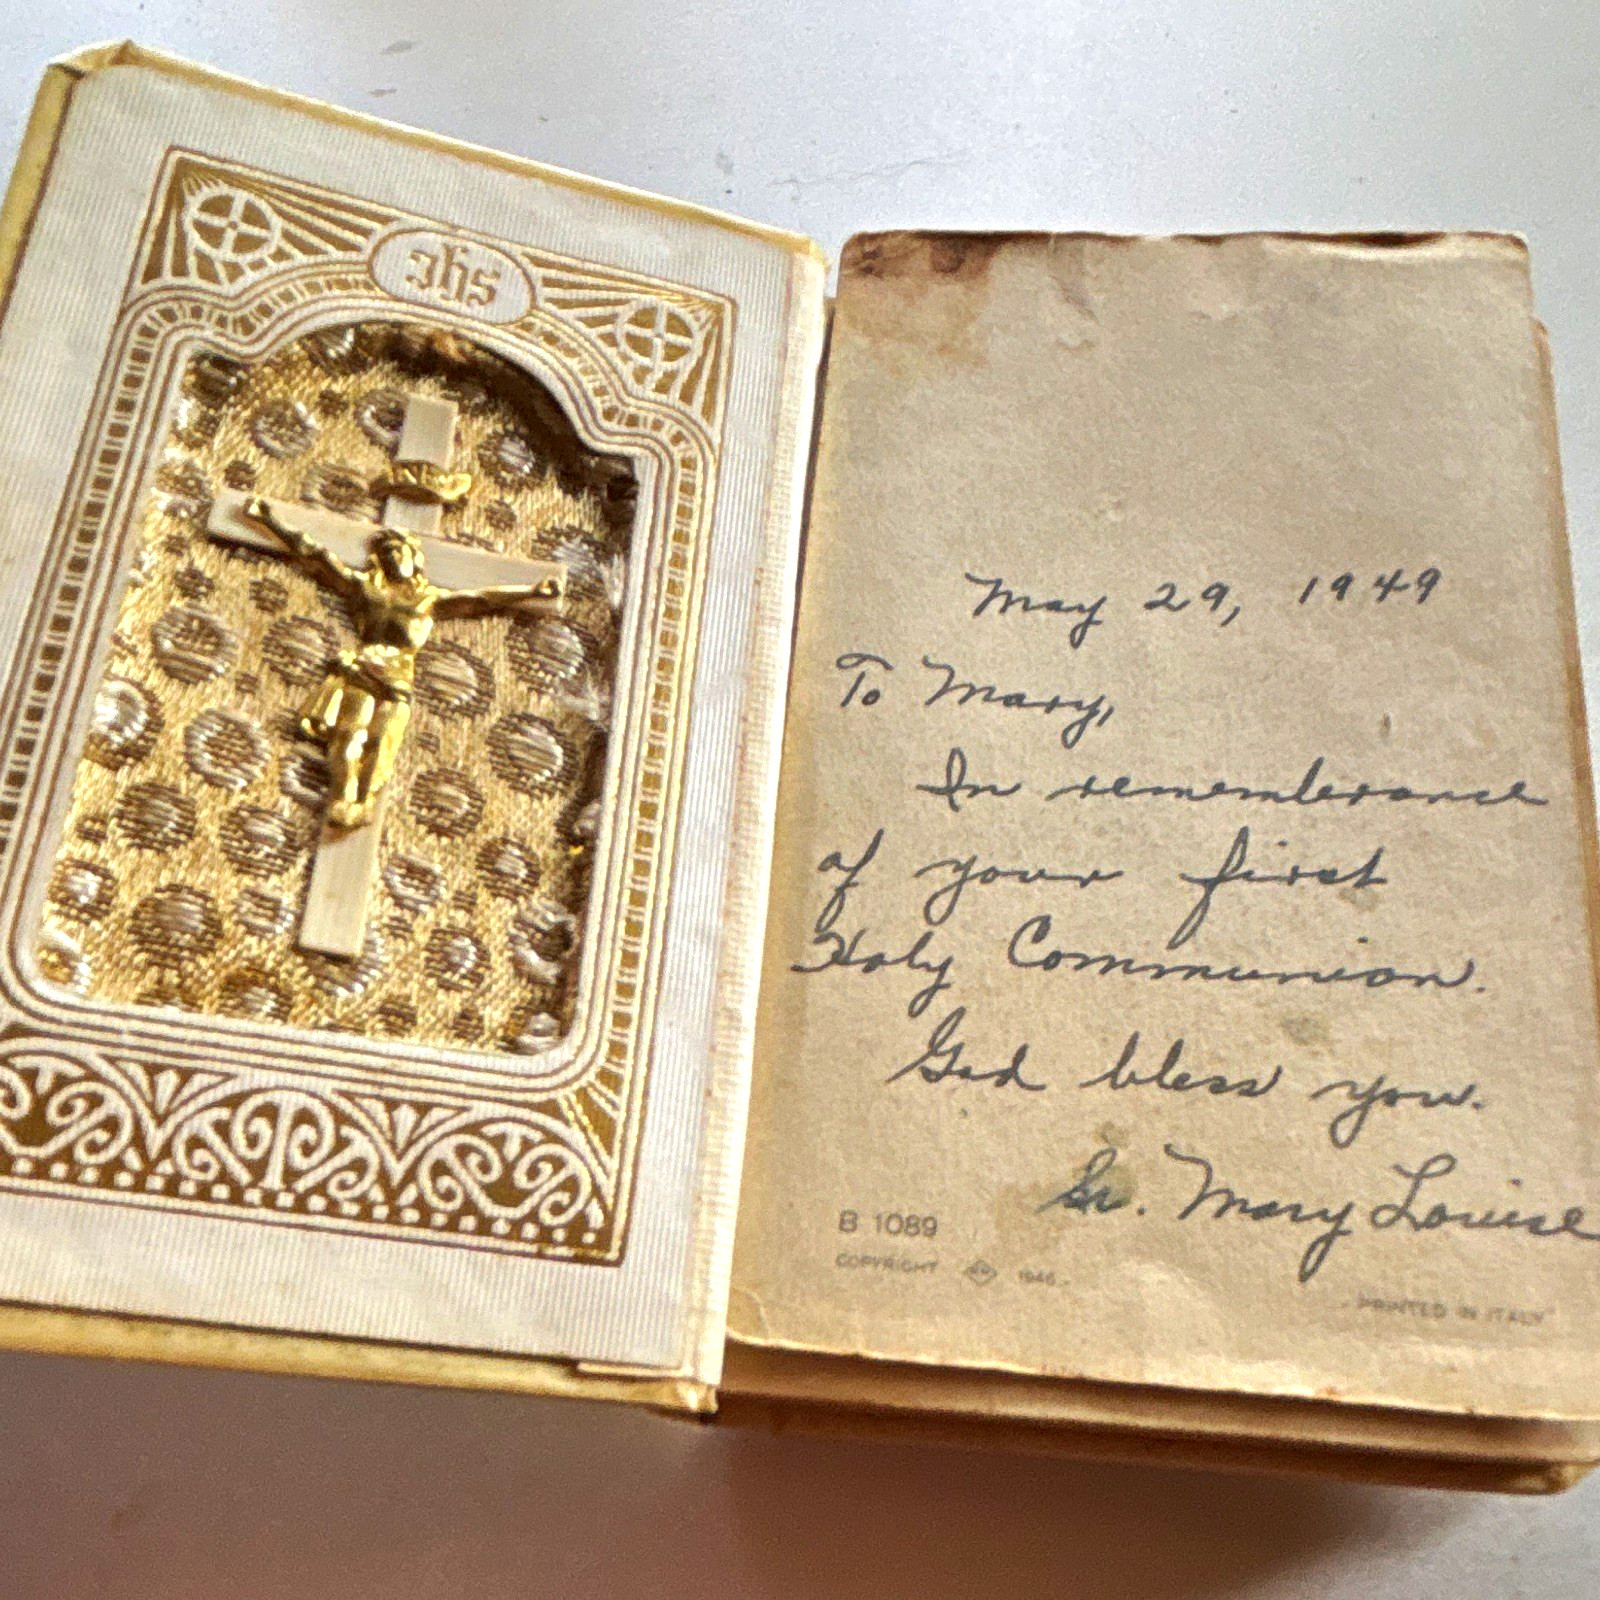 ihs
May 29, 1949
To Mary,
In rememberance
of your first
Holy Communion.
God bless you.
Sr. Mary Louise
B 1089
COPYRIGHT 1946.-
PRINTED IN ITALY